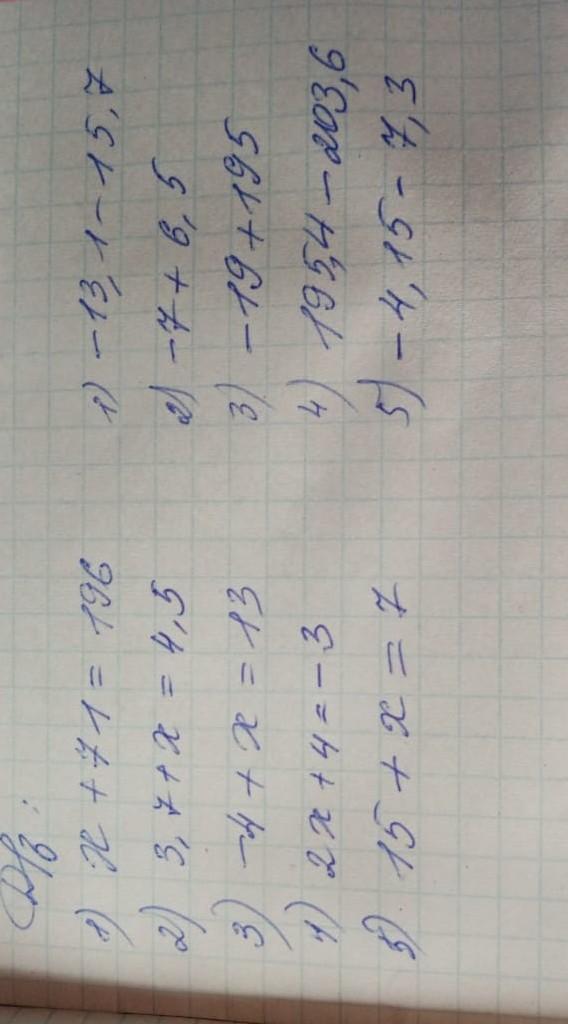 Д/з:
1) x + 71 = 196
2) 3,7 + x = 4,5
3) -4 + x = 13
4) 2x + 4 = -3
5) 15 + x = 7
1) -13,1 - 15,7
2) -7 + 6,5
3) -19 + 195
4) 195,4 - 203,6
5) -4,15 - 7,3